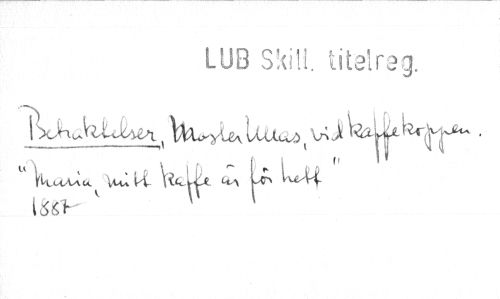 LUB Skill. titelreg.
Betraktelser, Moster Ullas, vid kaffekoppen.
"Maria, mitt kaffe är för hett"
1887